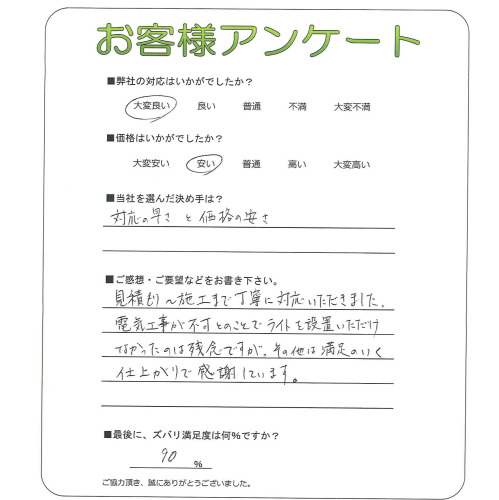 お客様アンケート
■弊社の対応はいかがでしたか？
大変良い 良い 普通 不満 大変不満
■価格はいかがでしたか？
大変安い 安い 普通 高い 大変高い
■当社を選んだ決め手は？
対応の早さ と 価格の安さ
■ご感想・ご要望などをお書き下さい。
見積り〜施工まで丁寧に対応いただきました。
電気工事が不可とのことでライトを設置いただけ
なかったのは残念ですが、その他は満足のいく
仕上がりで感謝しています。
■最後に、ズバリ満足度は何％ですか？
90 ％
ご協力頂き、誠にありがとうございました。